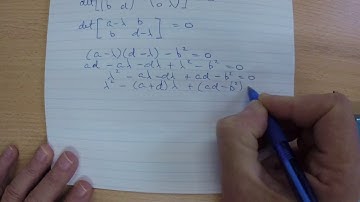 det [ a-λ b
b d-λ ] = 0
(a-λ)(d-λ) - b² = 0
ad - aλ - dλ + λ² - b² = 0
λ² - aλ - dλ + ad - b² = 0
λ² - (a+d)λ + (ad-b²)